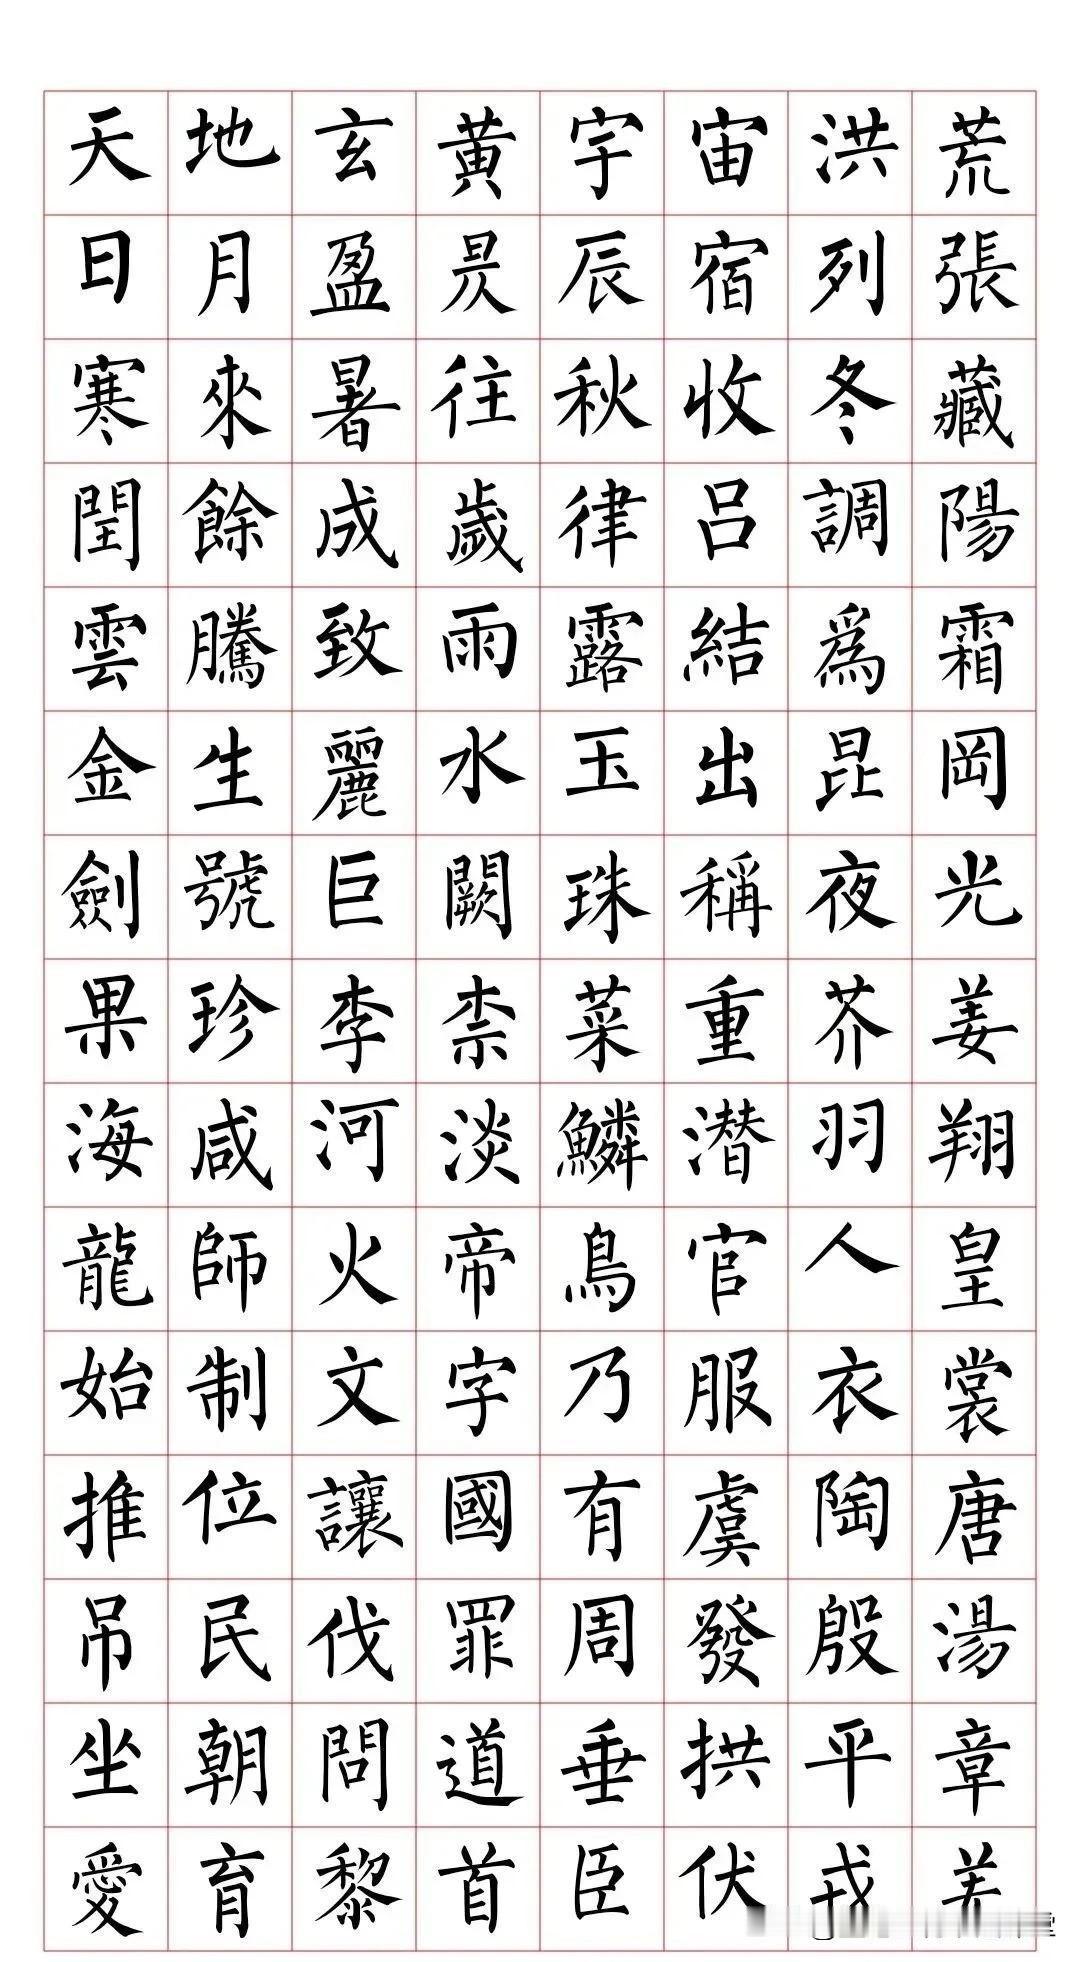 天地玄黄宇宙洪荒
日月盈昃辰宿列張
寒來暑往秋收冬藏
閏餘成歲律呂調陽
雲騰致雨露結為霜
金生麗水玉出昆岡
劍號巨闕珠稱夜光
果珍李柰菜重芥姜
海咸河淡鱗潛羽翔
龍師火帝鳥官人皇
始制文字乃服衣裳
推位讓國有虞陶唐
吊民伐罪周發殷湯
坐朝問道垂拱平章
愛育黎首臣伏戎羌